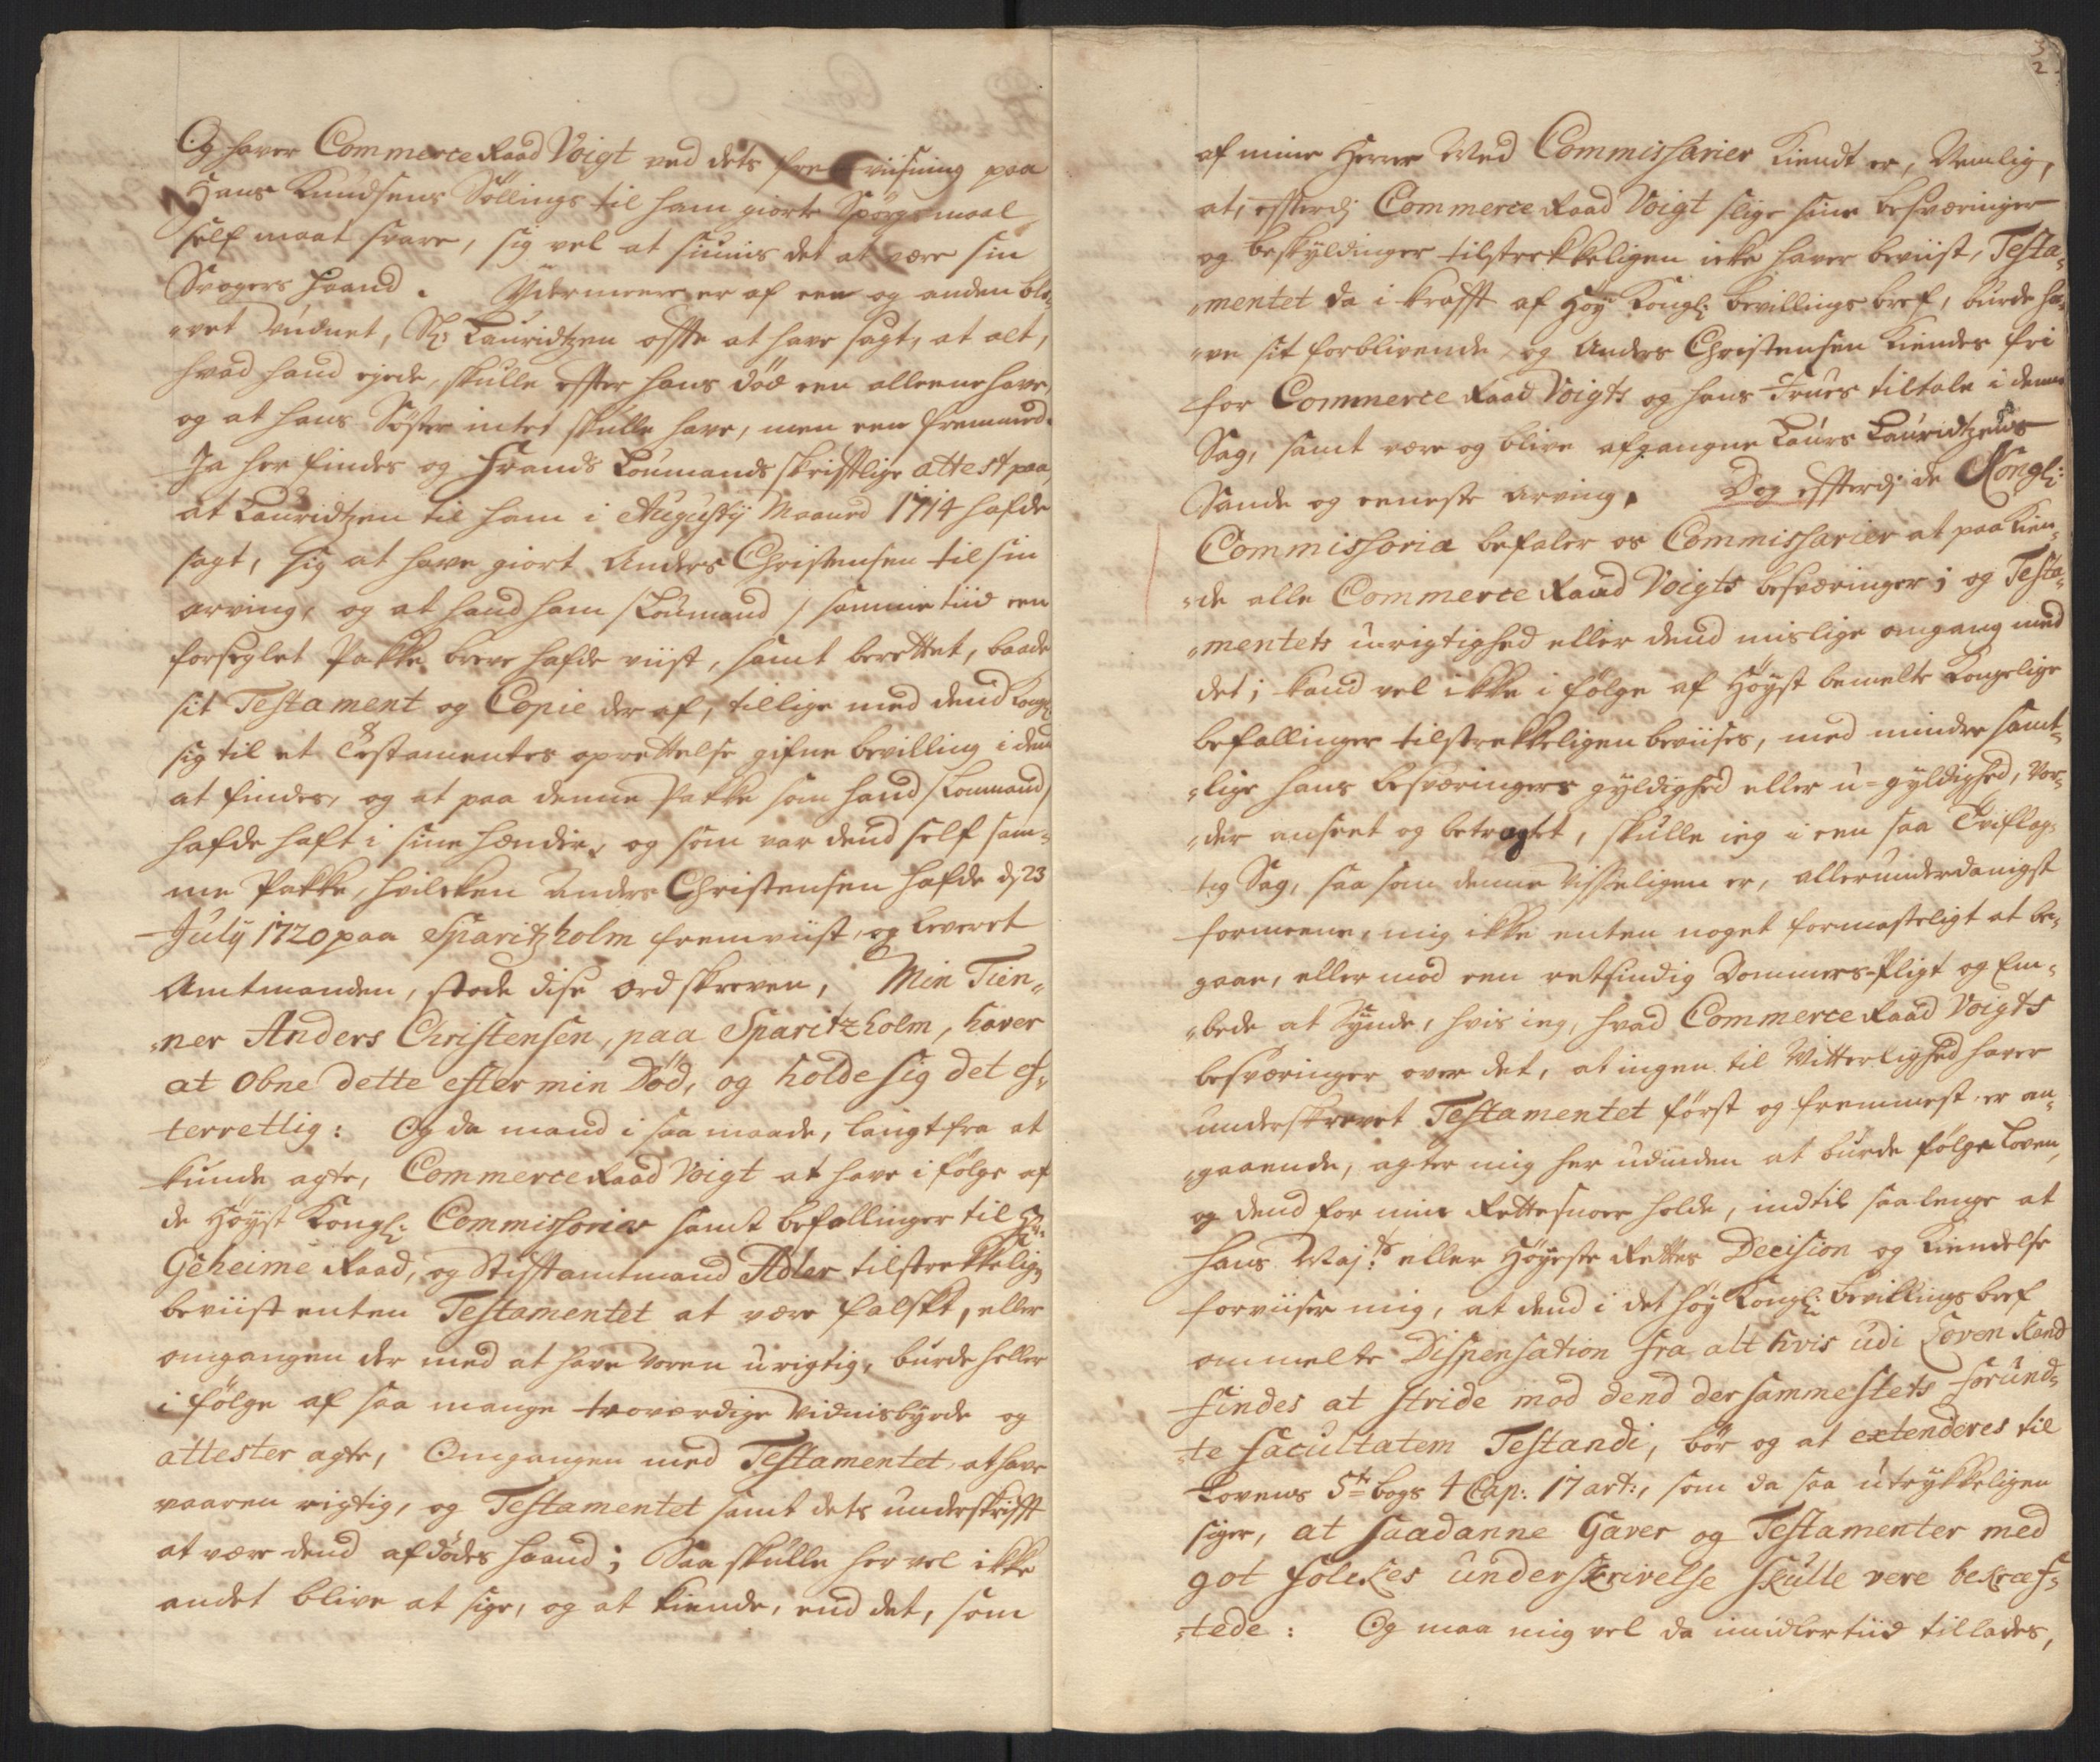 Og haver Commerce Raad Voigt ved dets fremviisning paa
Hans Knudsens Söllings til ham giorte Spörgsmaal
self maat svare, sig vel at siunis det at være sin
Svogers Haand. Ydermeere er af een og anden ble-
-vet vidnet, Sl: Lauridtzen offte at have sagt, at alt,
hvad hand ejede, skulle effter hans död een alleene have,
og at hans Söster intet skulle have, men een fremmed.
Ja her findes og Frands Loumands skrifftlige attest paa,
at Lauridtzen til ham i Augusty Maaned 1714 hafde
sagt, sig at have giort Anders Christensen til sin
arving, og at hand ham /Loumand/ samme tiid een
forseglet Pakke breve hafde viist, samt berettet, baade
sit Testament og Copie der af, tillige med dend Kongl:
sig til et Testamentes oprettelse gifne bevilling i den
at findes, og at paa denne Pakke som hand /Loumand/
hafde haft i sine hænder, og som var dend self sam-
me Pakke, hvilcken Anders Christensen hafde d 23
July 1720 paa Sparitzholm fremviist, og Leveret
Amtmanden, stode disse ord skreven, Min Tien-
-ner Anders Christensen, paa Sparitzholm, haver
at obne dette efter min Död, og holde sig det ef-
terrettig: Og da mand i saa maade, langt fra at
kunde agte, Commerce Raad Voigt at have i fölge af
de Höyst Kongl: Commissorier samt befallinger til Hr:
Geheime Raad, og Stifftamtmand Adler tilstrekkelig
beviist enten Testamentet at være falskt, eller
omgangen der med at have været urigtig, burde heller
i fölge af saa mange troværdige vidnisbyrde og
attester agte, Omgangen med Testamentet at have
vaaren rigtig, og Testamentet samt dets underskrifft
at være dend afdödes haand; Saa skulle her vel ikke
andet blive at sige, og at kiende, end det, som
3
2
af mine Herrer Med Commissarier kiendt er, Nemlig,
at, effterdj Commerce Raad Voigt slige sine besværinger
og beskyldinger tilstrekkeligen icke haver beviist, Testa-
-mentet da i krafft af Höy Kongl: bevillings bref, burde ha-
-ve sit forblivende, og Anders Christensen kiendes fri
for Commerce Raad Voigts og hans Frues tiltale i denne
Sag, samt være og blive afgangne Laurs Lauridtzens
Sande og eeneste arving. Dog effterdj de Kongl:
Commissoria befaler os Commissarier at paa kien-
-de alle Commerce Raad Voigts besværinger; og Testa-
-mentets urigtighed eller dend mislige omgang med
det; kand vel ikke i fölge af Höyst bemelte Kongelige
befallinger tilstrekkeligen beviises, med mindre samt-
-lige hans besværingers gyldighed eller u-gyldighed, Vor-
-der anseet og betragtet, skulle ieg i een saa
tig Sag, saa som denne visseligen er, allerunderdanigst
formeene, mig ikke enten noget formasteligt at be-
gaae, eller mod een retsindig Dommers-Pligt og Em-
-bede at Synde, hvis ieg, hvad Commerce Raad Voigts
besværinger over det, at ingen til Vitterlighed haver
underskrevet Testamentet först og fremmest er an-
-gaaende, agter mig her udinden at burde fölge Loven,
og dend for min Rettesnoer holde, indtil saa lenge at
Hans May:ts eller Höyeste Rettes Decision og kiendelse
forviiser mig, at dend i det höy Kongl: bevillings bref
ommelte Dispensation fra alt hvis udi Loven Kand
findes at stride mod dend dersammestets forund-
-te facultatem Testandi, bör og at extenderes til
Lovens 5te bogs 4 Cap: 17 art:, som da saa utrykkeligen
siger, at saadanne Gaver og Testamenter med
got folckes underskrivelse skulle vere bekræf-
-tede: Og maa mig vel da imidlertiid tillades,